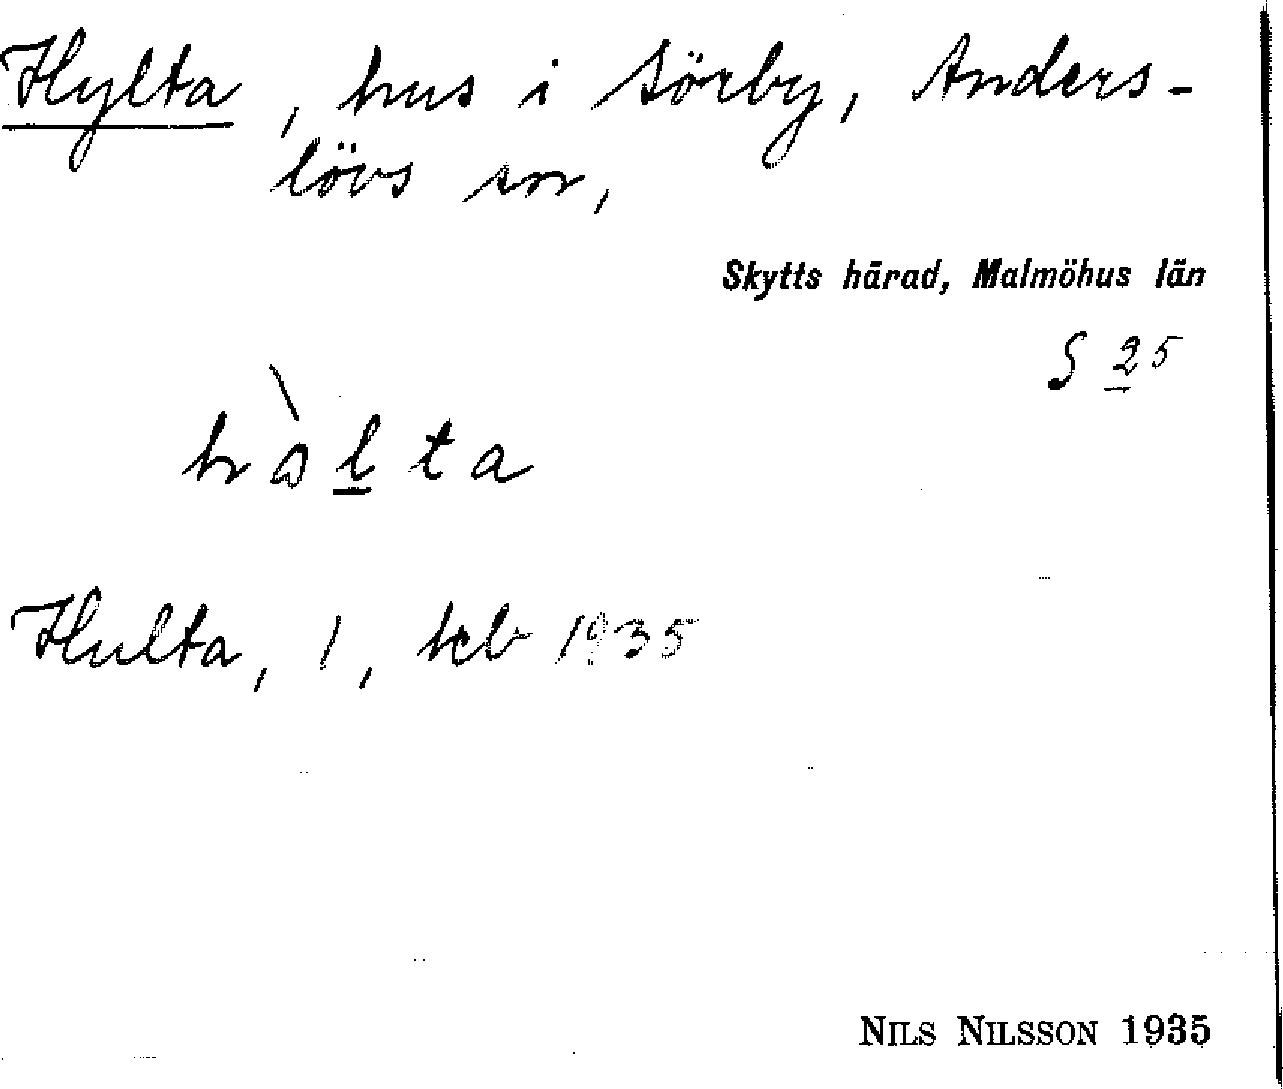 Hylta, hus i Sörby, Anders-
lövs sn,
Skytts härad, Malmöhus län
S 25
hàlta
Hulta, 1, tcb 1935
NILS NILSSON 1935